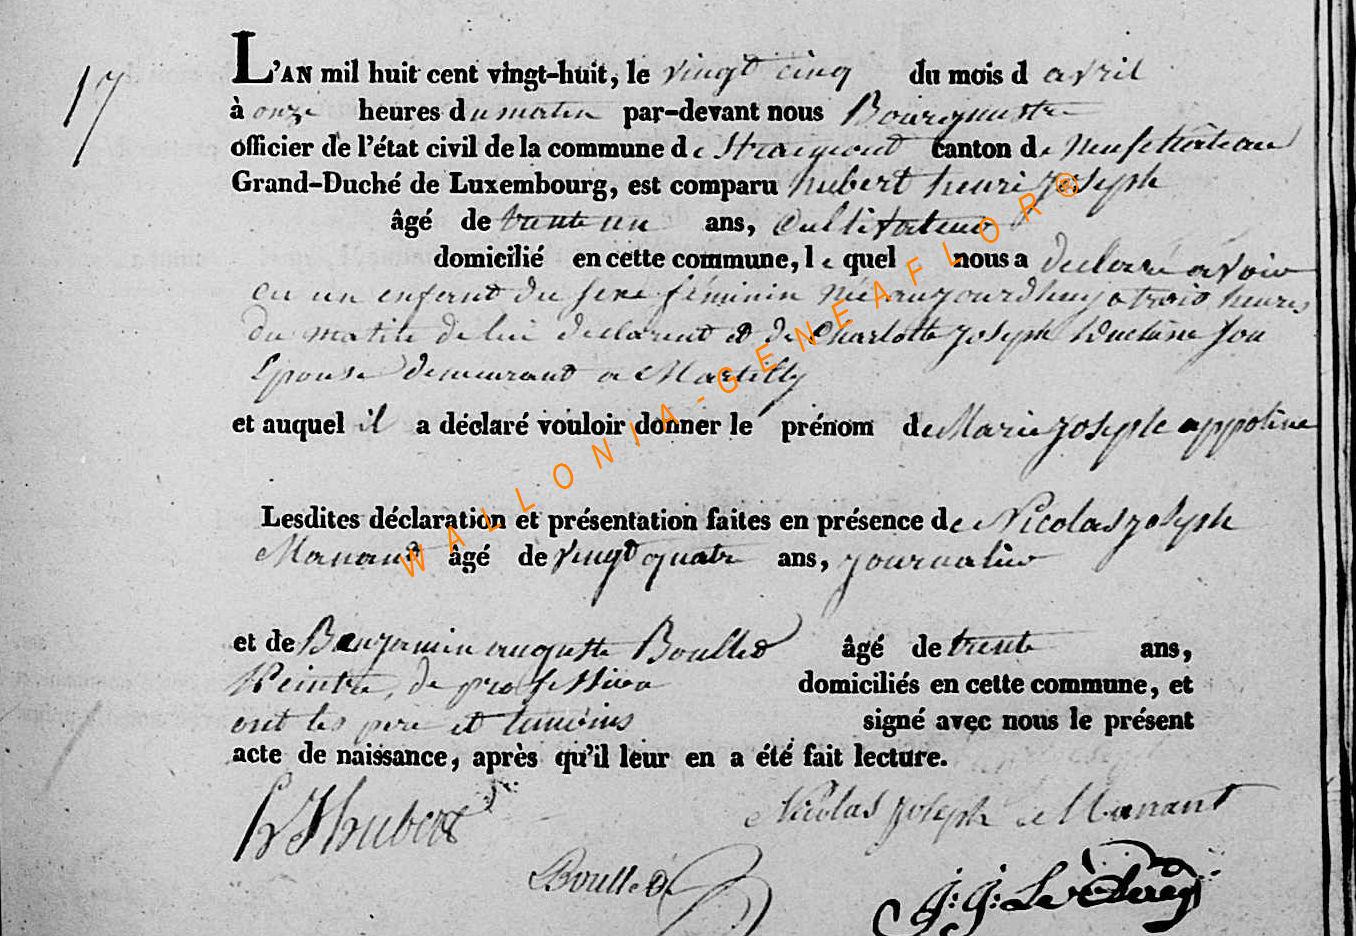 17
L'AN mil huit cent vingt-huit, le vingt cinq du mois d avril
à onze heures du matin par-devant nous Bourgmestre
officier de l'état civil de la commune de Straimont canton de Neufchâteau
Grand-Duché de Luxembourg, est comparu hubert henri joseph
âgé de trente un ans, Cultivateur
domicilié en cette commune, le quel nous a declaré avoir
eu un enfant du sexe féminin née aujourdhuy a trois heures
du matin de lui declarant et de Charlotte joseph son
Epouse demeurant a Martilly
et auquel il a déclaré vouloir donner le prénom de Marie joseph appoline
Lesdites déclaration et présentation faites en présence de Nicolas joseph
Manant âgé de vingt quatre ans, journalier
et de Benjamin auguste Boulled âgé de trente ans,
Peintre, de profession domiciliés en cette commune, et
ont les pere et temoins signé avec nous le présent
acte de naissance, après qu'il leur en a été fait lecture.
hJ hubert Nicolas joseph Manant
Boulled
J: J: Le Clercq
WALLONIA-GENEAFLOR®